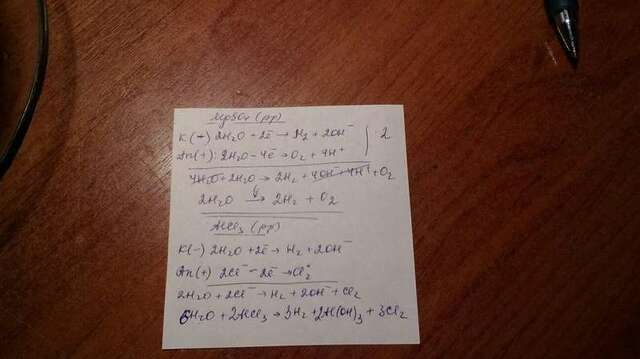 MgSO4 (р-р)
K(-) 2H2O + 2ē → H2 + 2OH⁻ | · 2
An(+): 2H2O - 4ē → O2 + 4H⁺
4H2O + 2H2O → 2H2 + 4OH⁻ + 4H⁺ + O2
2H2O → 2H2 + O2
AlCl3 (р-р)
K(-) 2H2O + 2ē → H2 + 2OH⁻
An(+) 2Cl⁻ - 2ē → Cl2°
2H2O + 2Cl⁻ → H2 + 2OH⁻ + Cl2
6H2O + 2AlCl3 → 3H2 + 2Al(OH)3 + 3Cl2